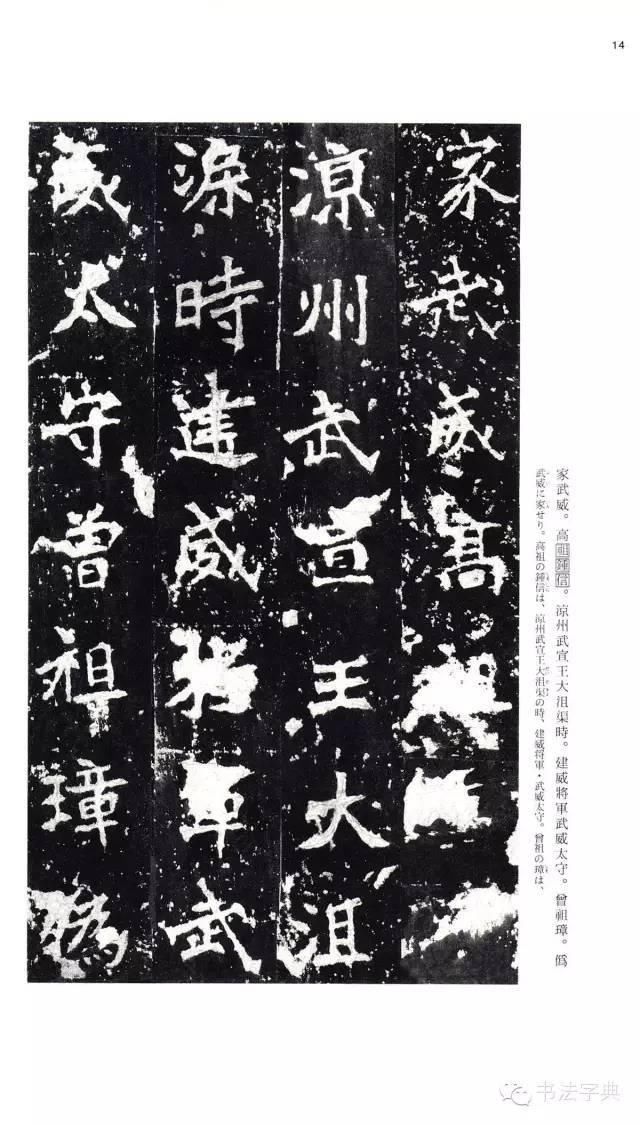 14
家武威高祖
涼州武宣王大沮
渠時建威將軍武
威太守曾祖璋僞
家武威。高祖鍾信。涼州武宣王大沮渠時。建威將軍武威太守。曾祖璋。僞
武威に家せり。高祖の鍾信は、涼州武宣王大沮渠の時、建威将軍・武威太守。曾祖の璋は、
书法字典